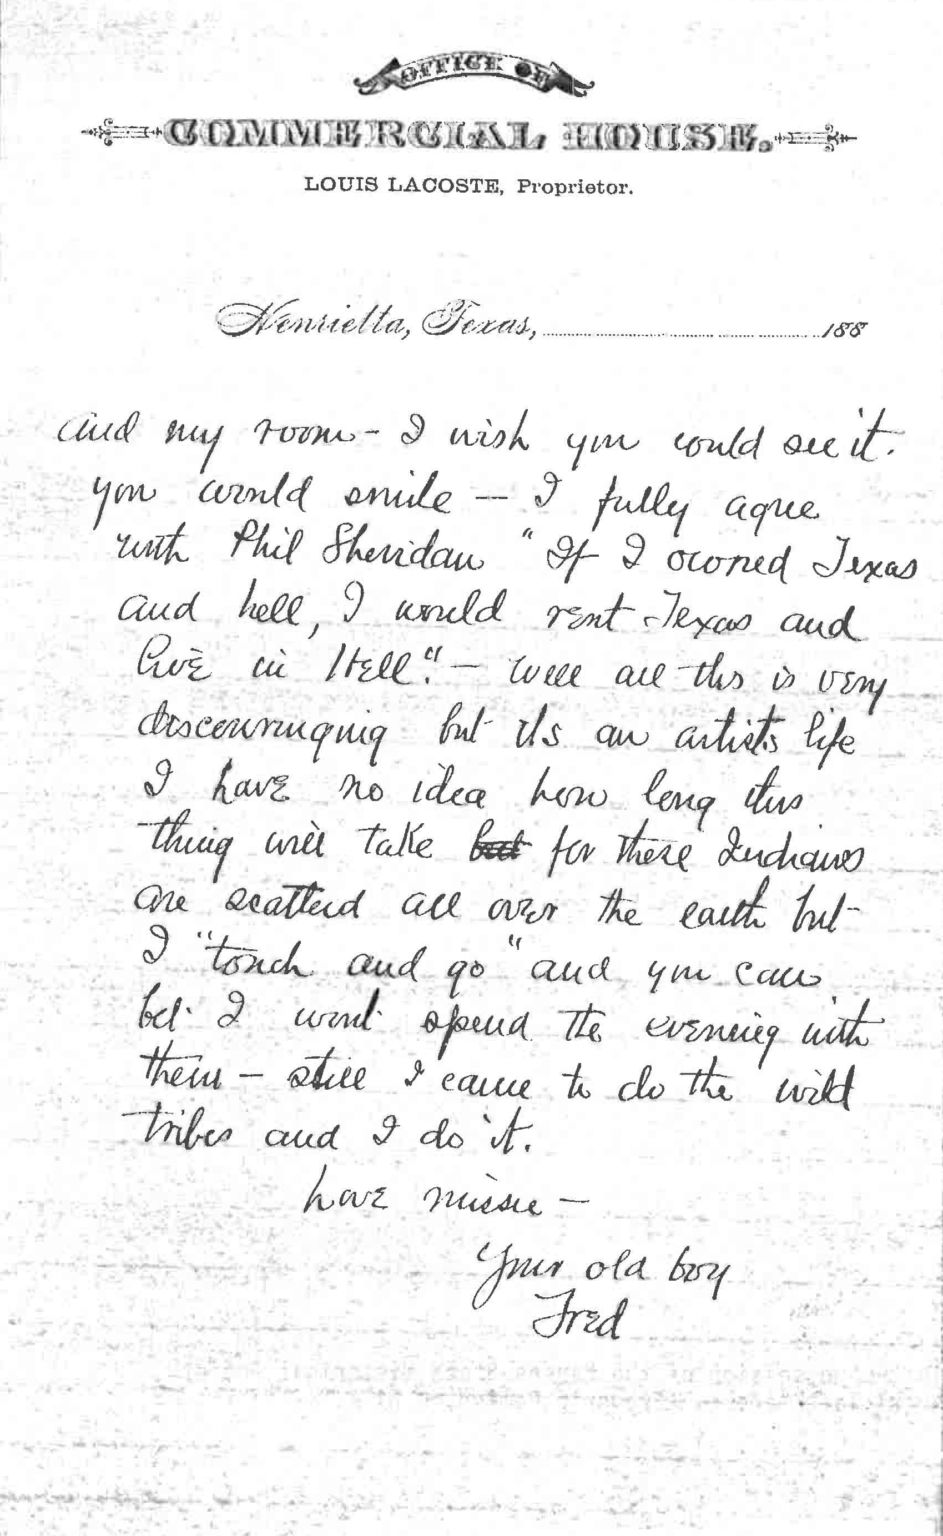 OFFICE OF
COMMERCIAL HOUSE.
LOUIS LACOSTE, Proprietor.
Henrietta, Texas, 188
and my room - I wish you could see it.
you would smile -- I fully agree
with Phil Sheridan "If I owned Texas
and hell, I would rent Texas and
live in Hell". - Well all this is very
discouraging but its an artists life
I have no idea how long this
thing will take but for these Indians
are scatterd all over the earth but
I "touch and go" and you can
bet I wont spend the evening with
them - still I came to do the wild
tribes and I do it.
Love missie -
Your old boy
Fred